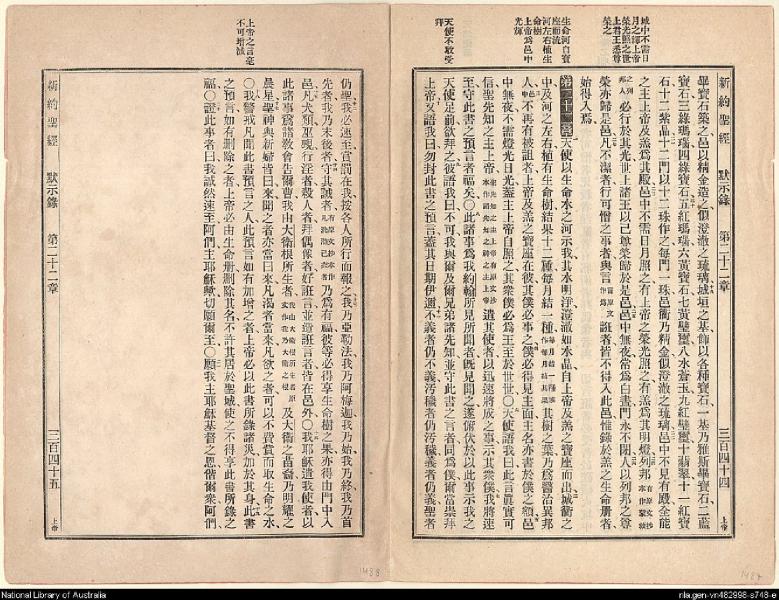 城中不需日
月之輝上帝
榮光照之世
上君王悉尊
榮之
生命河自寶
座而流
河左右植生
命樹
上帝爲邑中
光輝
天使不敢受
拜
新約聖經 默示錄 第二十二章 三百四十四 上帝
畢寶石築之邑以精金造之似澄澈之琉璃城垣之基飾以各種寶石一基乃雅斯畢寶石二藍
寶石三綠瑪瑙四綠寶石五紅瑪瑙六黃寶石七黃璧璽八水蒼玉九紅璧璽十翡翠十一紅寶
石十二紫晶十二門以十二珠作之每門一珠邑衢乃精金似澄澈之琉璃邑中不見有殿全能
之主上帝及羔爲其殿邑中不需日月照之有上帝之榮光照之有羔爲其明燈列邦
之人必行於其光世上諸王以己尊榮歸於是邑邑中無夜常爲白晝門永不閉人以列邦之尊
榮亦歸是邑凡不潔者行可憎之事者與言誑者皆不得入此邑惟錄於羔之生命册者
始得入焉
第二十二章 天使以生命水之河示我其水明洋澄澈如水晶自上帝及羔之寶座而出城衢之
中及河之左右植有生命樹結果十二種每月結一種其樹之葉乃爲醫治異邦
人邑不再有被詛者上帝及羔之寶座在彼其僕必事之僕必得見主面主名亦書於僕之額邑
中無夜不需燈光日光蓋主上帝自照之其衆僕必爲王至於世世〇天使語我曰此言眞實可
信聖先知之主上帝遣其使者以迅速將成之事示其衆僕我將速
至守此書之預言者福矣〇此諸事爲我約翰所見所聞者旣見聞之遂俯伏於以此事示我之
天使足前欲拜之彼語我曰不可我與爾及爾兄弟諸先知並守此書之言者同爲僕爾當崇拜
上帝又語我曰勿封此書之預言蓋其日期伊邇不義者仍不義汚穢者仍汚穢義者仍義聖者
上帝之言毫
不可增減
仍聖我必速至賞罰在我按各人所行而報之我乃亞勒法我乃阿梅迦我乃始我乃終我乃首
先者我乃末後者守其誡者乃爲有福彼等必得享生命樹之果亦得由門中入
邑凡犬類巫覡行淫者殺人者拜偶像者好誑言並造誑言者皆在邑外〇我耶穌遣我使者以
此諸事爲諸敎會吿爾曹我由大衛根所生者及大衛之苗裔乃明耀之
晨星聖神與新婦皆曰來聞之者亦當曰來凡渴者當來凡欲之者可以不費賞而取生命之水
〇我警戒凡聞此書預言之人此預言如有加增之者上帝必以此書所錄諸災加於其身此書
之預言如有刪除之者上帝必由生命册刪除其名不許其居於聖城使之不得享此書所錄之
福〇證此事者曰我誠然速至阿們主耶穌歟切願爾至〇願我主耶穌基督之恩偕爾衆阿們
新約聖經 默示錄 第二十二章 三百四十五 上帝
1488
1487
National Library of Australia
nla.gen-vn482998-s748-e